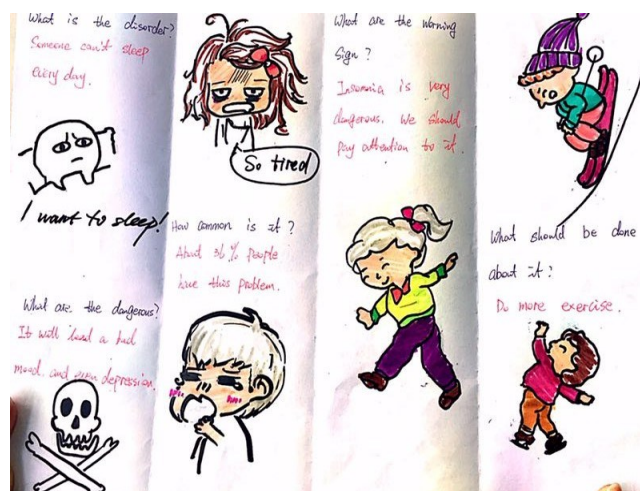 What is the disorder?
Someone can't sleep
every day.
I want to sleep!
What are the dangerous?
It will lead a bad
mood, and even depression.
So tired
How common is it?
About 36% people
have this problem.
What are the Warning
Sign?
Insomnia is very
dangerous. We should
pay attention to it.
What should be done
about it?
Do more exercise.